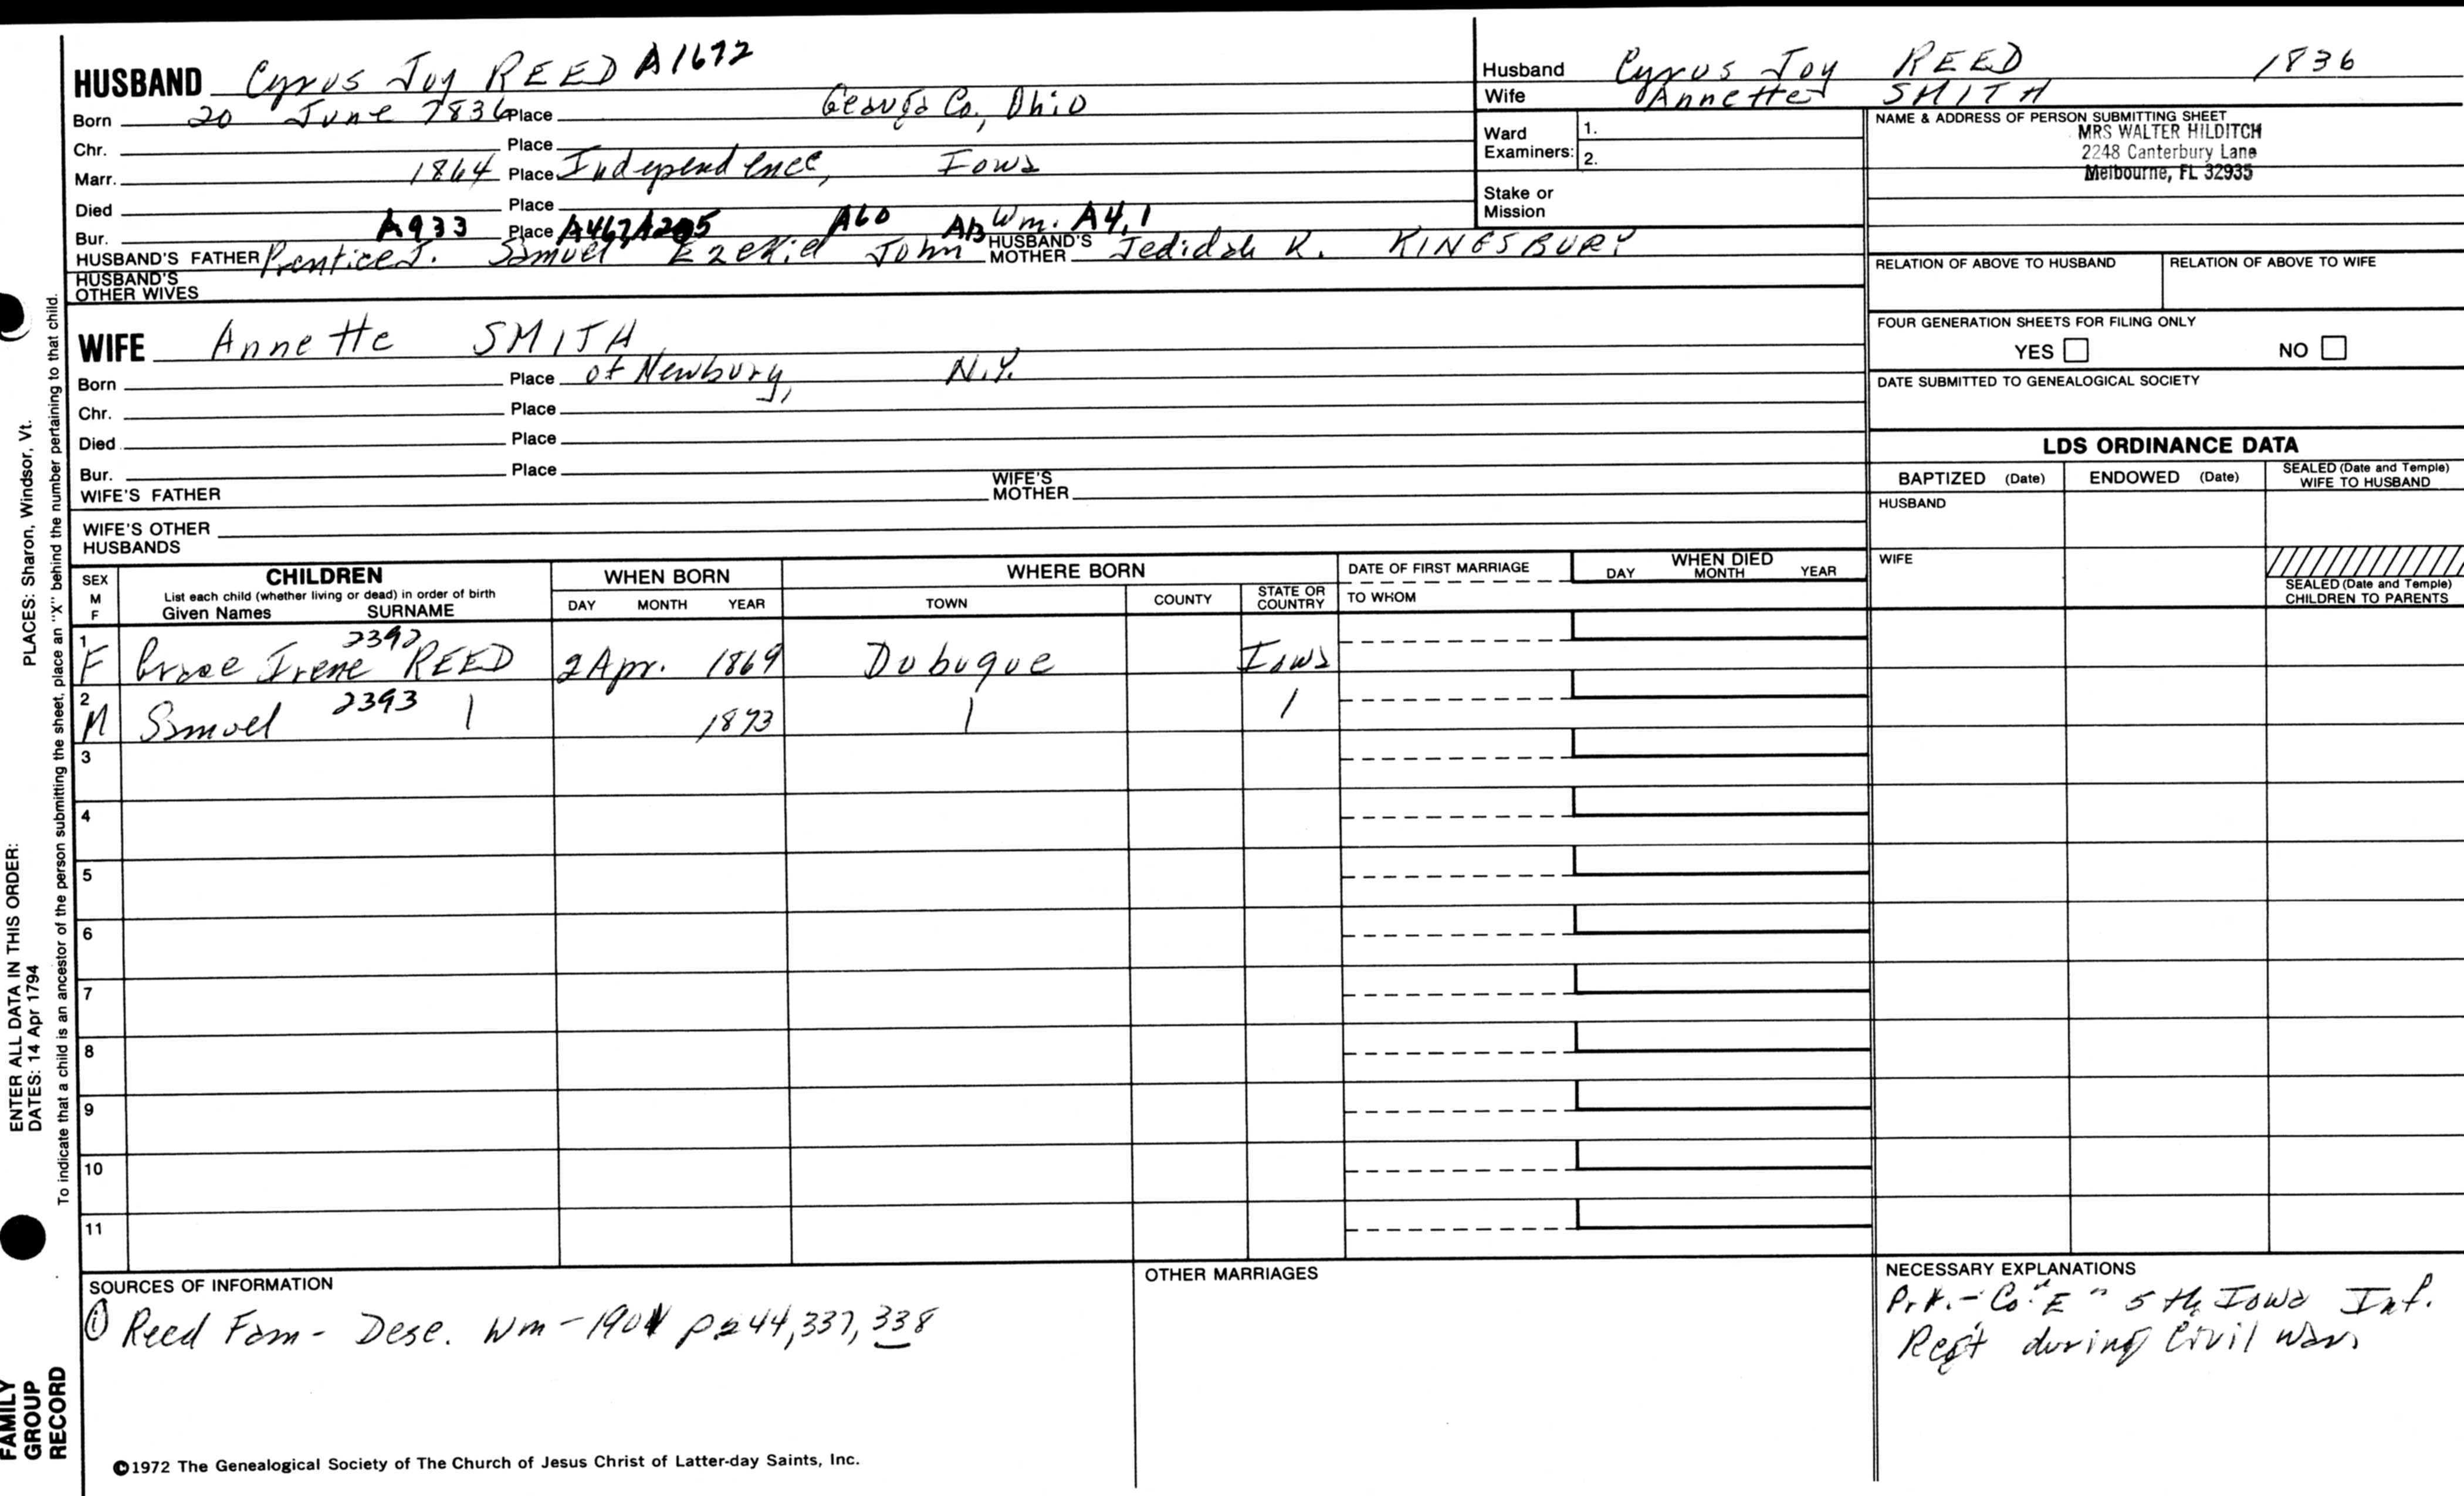 HUSBAND Cyrus Joy REED A1672
Born 20 June 1836 Place Geauga Co., Ohio
Chr. Place
Marr. 1864 Place Independence, Iowa
Died Place
Bur. Place
A933 A467 A205 A60 A13 Wm. A4,1
HUSBAND'S FATHER Prentice J. Samuel Ezekiel John HUSBAND'S MOTHER Jedidah K. KINGSBURY
HUSBAND'S OTHER WIVES
WIFE Annette SMITH
Born Place of Newbury, N.Y.
Chr. Place
Died Place
Bur. Place
WIFE'S FATHER WIFE'S MOTHER
WIFE'S OTHER HUSBANDS
Husband Cyrus Joy REED 1836
Wife Annette SMITH
Ward Examiners: 1.
2.
Stake or Mission
NAME & ADDRESS OF PERSON SUBMITTING SHEET
MRS WALTER HILDITCH
2248 Canterbury Lane
Melbourne, FL 32935
RELATION OF ABOVE TO HUSBAND RELATION OF ABOVE TO WIFE
FOUR GENERATION SHEETS FOR FILING ONLY
YES NO
DATE SUBMITTED TO GENEALOGICAL SOCIETY
LDS ORDINANCE DATA
BAPTIZED (Date) ENDOWED (Date) SEALED (Date and Temple) WIFE TO HUSBAND
HUSBAND
WIFE
SEALED (Date and Temple) CHILDREN TO PARENTS
SEX M F
CHILDREN
List each child (whether living or dead) in order of birth
Given Names SURNAME
WHEN BORN
DAY MONTH YEAR
WHERE BORN
TOWN COUNTY STATE OR COUNTRY
DATE OF FIRST MARRIAGE
TO WHOM
WHEN DIED
DAY MONTH YEAR
1 2392
F Grace Irene REED 2 Apr. 1869 Dubuque Iowa
2 2393
M Samuel | 1873 | |
3
4
5
6
7
8
9
10
11
SOURCES OF INFORMATION
① Reed Fam - Desc. Wm - 1901 p 244, 337, 338
OTHER MARRIAGES
NECESSARY EXPLANATIONS
Prt. - Co. "E" 5th Iowa Inf.
Reg't during Civil War.
©1972 The Genealogical Society of The Church of Jesus Christ of Latter-day Saints, Inc.
PLACES: Sharon, Windsor, Vt.
To indicate that a child is an ancestor of the person submitting the sheet, place an "X" behind the number pertaining to that child.
ENTER ALL DATA IN THIS ORDER:
DATES: 14 Apr 1794
FAMILY
GROUP
RECORD